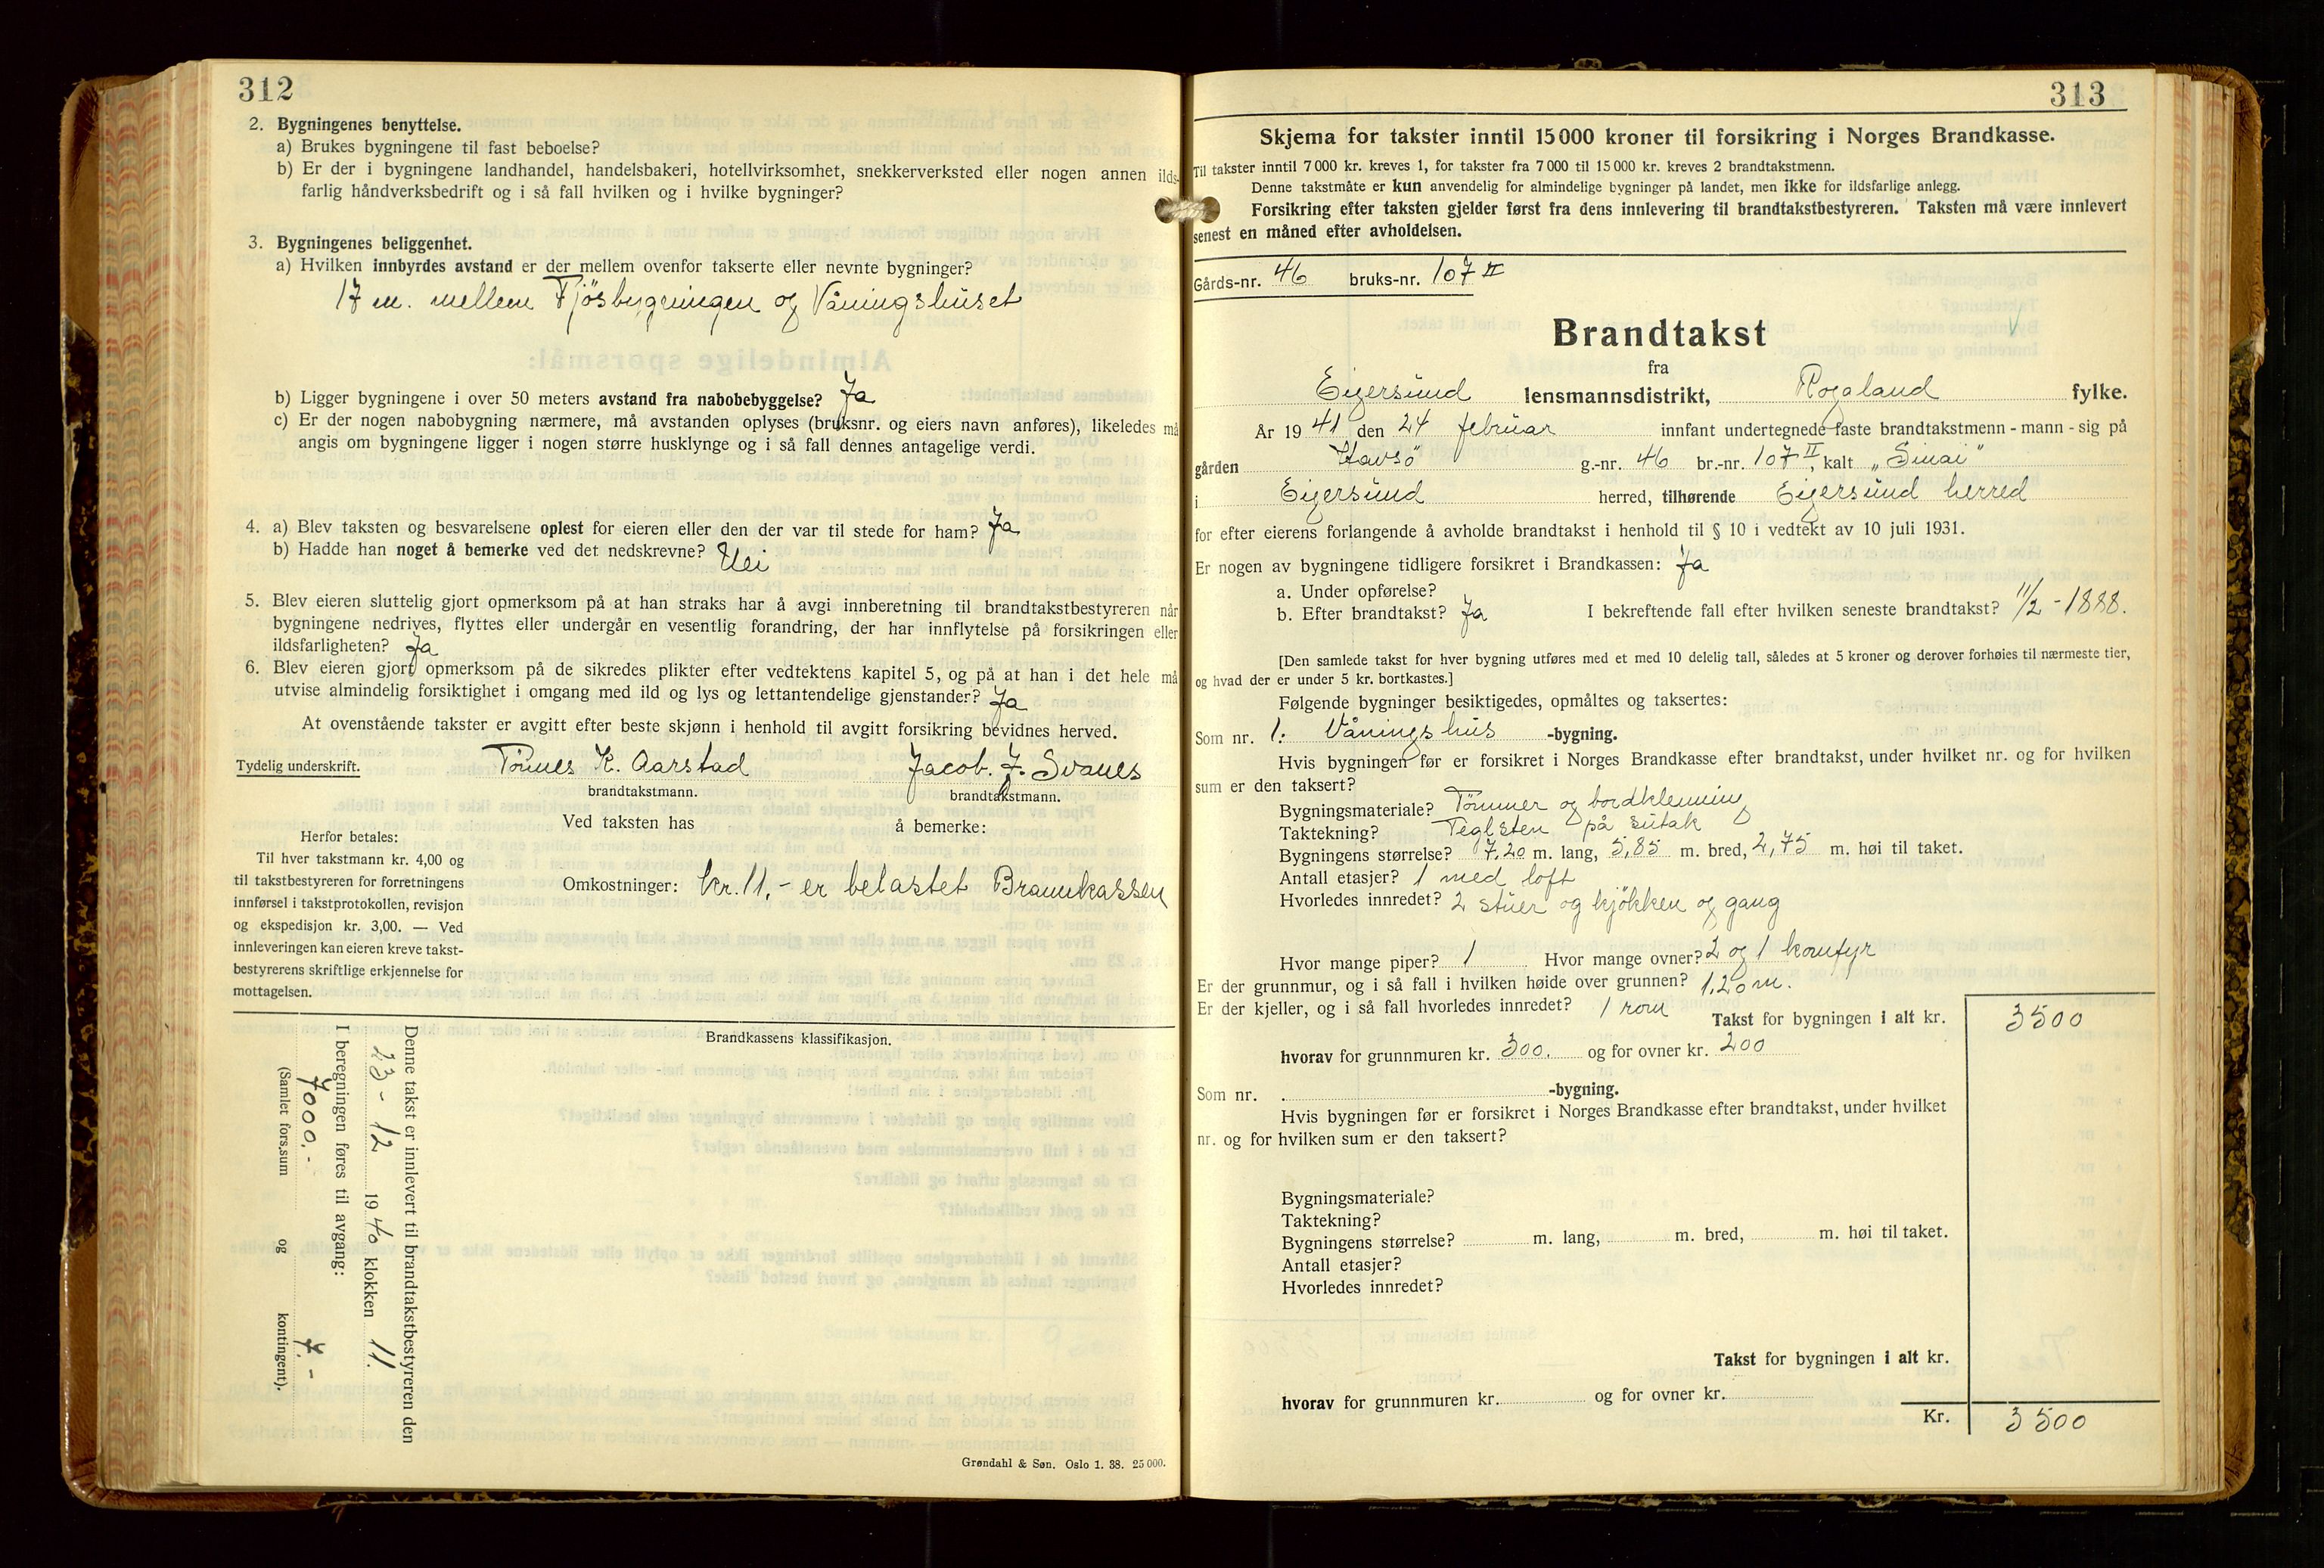 312
2. Bygningenes benyttelse.
a) Brukes bygningene til fast beboelse?
b) Er der i bygningene landhandel, handelsbakeri, hotellvirksomhet, snekkerverksted eller nogen annen ilds-
farlig håndverksbedrift og i så fall hvilken og i hvilke bygninger?
3. Bygningenes beliggenhet.
a) Hvilken innbyrdes avstand er der mellem ovenfor takserte eller nevnte bygninger?
17 m. mellem Fjösbygningen og Våningshuset
b) Ligger bygningene i over 50 meters avstand fra nabobebyggelse? Ja
c) Er der nogen nabobygning nærmere, må avstanden oplyses (bruksnr. og eiers navn anføres), likeledes må
angis om bygningene ligger i nogen større husklynge og i så fall dennes antagelige verdi.
4. a) Blev taksten og besvarelsene oplest for eieren eller den der var til stede for ham? Ja
b) Hadde han noget å bemerke ved det nedskrevne? Nei
5. Blev eieren sluttelig gjort opmerksom på at han straks har å avgi innberetning til brandtakstbestyreren når
bygningene nedrives, flyttes eller undergår en vesentlig forandring, der har innflytelse på forsikringen eller
ildsfarligheten? Ja
6. Blev eieren gjort opmerksom på de sikredes plikter efter vedtektens kapitel 5, og på at han i det hele må
utvise almindelig forsiktighet i omgang med ild og lys og lettantendelige gjenstander? Ja
At ovenstående takster er avgitt efter beste skjønn i henhold til avgitt forsikring bevidnes herved.
Tydelig underskrift. Tönnes K. Aarstad Jacob. J. Svanes
brandtakstmann. brandtakstmann.
Ved taksten has å bemerke:
Herfor betales:
Til hver takstmann kr. 4,00 og
til takstbestyreren for forretningens
innførsel i takstprotokollen, revisjon
og ekspedisjon kr. 3,00. — Ved
innleveringen kan eieren kreve takst-
bestyrerens skriftlige erkjennelse for
mottagelsen.
Omkostninger: kr. 11,- er belastet Brannkassen
Brandkassens klassifikasjon.
Denne takst er innlevert til brandtakstbestyreren den
23 - 12 1940 klokken 11.
I beregningen føres til avgang:
7000.- 7.-
(Samlet fors.sum og kontingent).
Grøndahl & Søn. Oslo 1. 38. 25 000.
313
Skjema for takster inntil 15 000 kroner til forsikring i Norges Brandkasse.
Til takster inntil 7 000 kr. kreves 1, for takster fra 7 000 til 15 000 kr. kreves 2 brandtakstmenn.
Denne takstmåte er kun anvendelig for almindelige bygninger på landet, men ikke for ildsfarlige anlegg.
Forsikring efter taksten gjelder først fra dens innlevering til brandtakstbestyreren. Taksten må være innlevert
senest en måned efter avholdelsen.
Gårds-nr. 46 bruks-nr. 107 II
Brandtakst
fra
Eigersund lensmannsdistrikt, Rogaland fylke.
År 1941 den 24 februar innfant undertegnede faste brandtakstmenn - mann - sig på
gården Havsö g.-nr. 46 br.-nr. 107 II, kalt „Sinai"
i Eigersund herred, tilhørende Eigersund herred
for efter eierens forlangende å avholde brandtakst i henhold til § 10 i vedtekt av 10 juli 1931.
Er nogen av bygningene tidligere forsikret i Brandkassen: Ja
a. Under opførelse?
b. Efter brandtakst? Ja I bekreftende fall efter hvilken seneste brandtakst? 11/2 - 1888.
[Den samlede takst for hver bygning utføres med et med 10 delelig tall, således at 5 kroner og derover forhøies til nærmeste tier,
og hvad der er under 5 kr. bortkastes.]
Følgende bygninger besiktigedes, opmåltes og taksertes:
Som nr. 1. Våningshus -bygning.
Hvis bygningen før er forsikret i Norges Brandkasse efter brandtakst, under hvilket nr. og for hvilken
sum er den taksert?
Bygningsmateriale? Tömmer og bordklemning
Taktekning? Teglsten på sutak
Bygningens størrelse? 7,20 m. lang, 5,85 m. bred, 2,75 m. høi til taket.
Antall etasjer? 1 med loft
Hvorledes innredet? 2 stuer og kjökken og gang
Hvor mange piper? 1 Hvor mange ovner? 2 og 1 komfyr
Er der grunnmur, og i så fall i hvilken høide over grunnen? 1,20 m.
Er der kjeller, og i så fall hvorledes innredet? 1 rom
Takst for bygningen i alt kr. 3500
hvorav for grunnmuren kr. 300. og for ovner kr. 200
Som nr. . -bygning.
Hvis bygningen før er forsikret i Norges Brandkasse efter brandtakst, under hvilket
nr. og for hvilken sum er den taksert?
Bygningsmateriale?
Taktekning?
Bygningens størrelse? m. lang, m. bred, m. høi til taket.
Antall etasjer?
Hvorledes innredet?
Takst for bygningen i alt kr.
hvorav for grunnmuren kr. og for ovner kr.
Kr. 3500